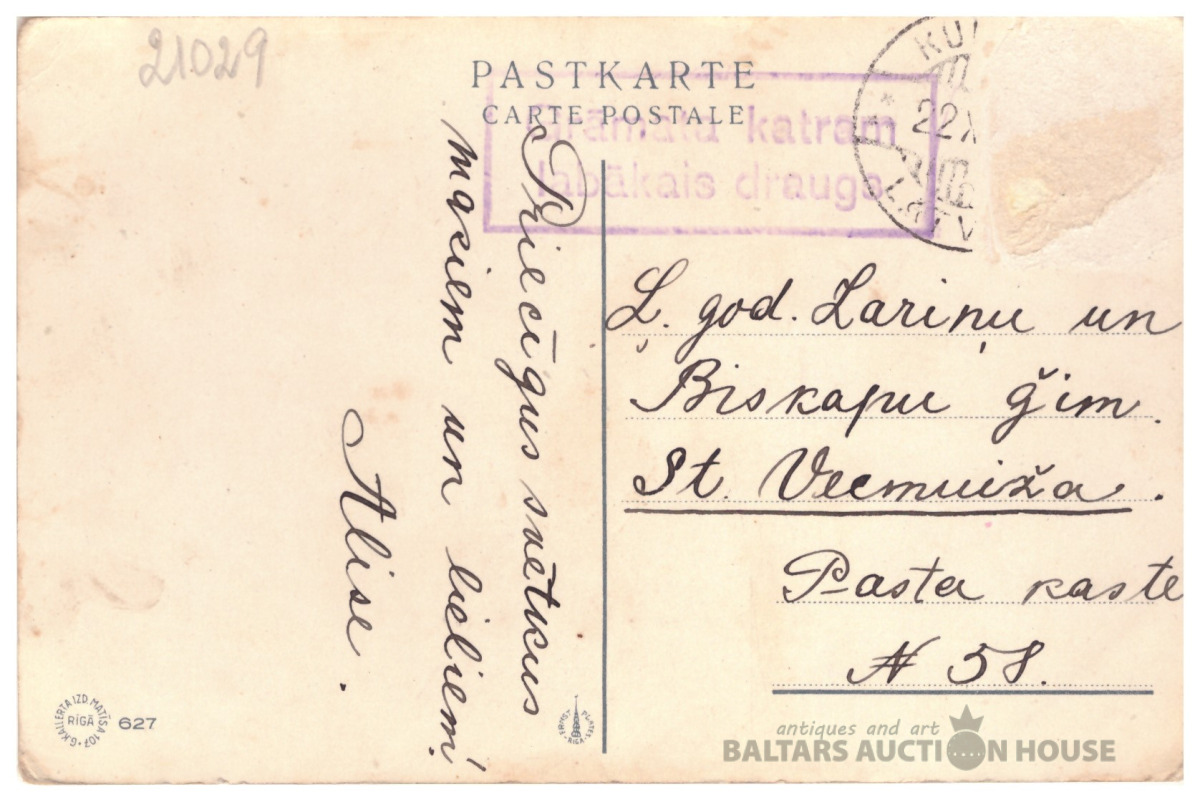 21029
PASTKARTE
CARTE POSTALE
Grāmata katram
labākais draugs.
22X
LATV
Priecīgus svētkus
maziem un lieliem!
Alise.
Ļ. god. Lariņu un
Biskapu ģim.
St. Vecmuiža.
Pasta kaste
N 58.
G.KALLERTA IZD. MATĪSA 107
RĪGĀ
627
antiques and art
BALTARS AUCTION HOUSE